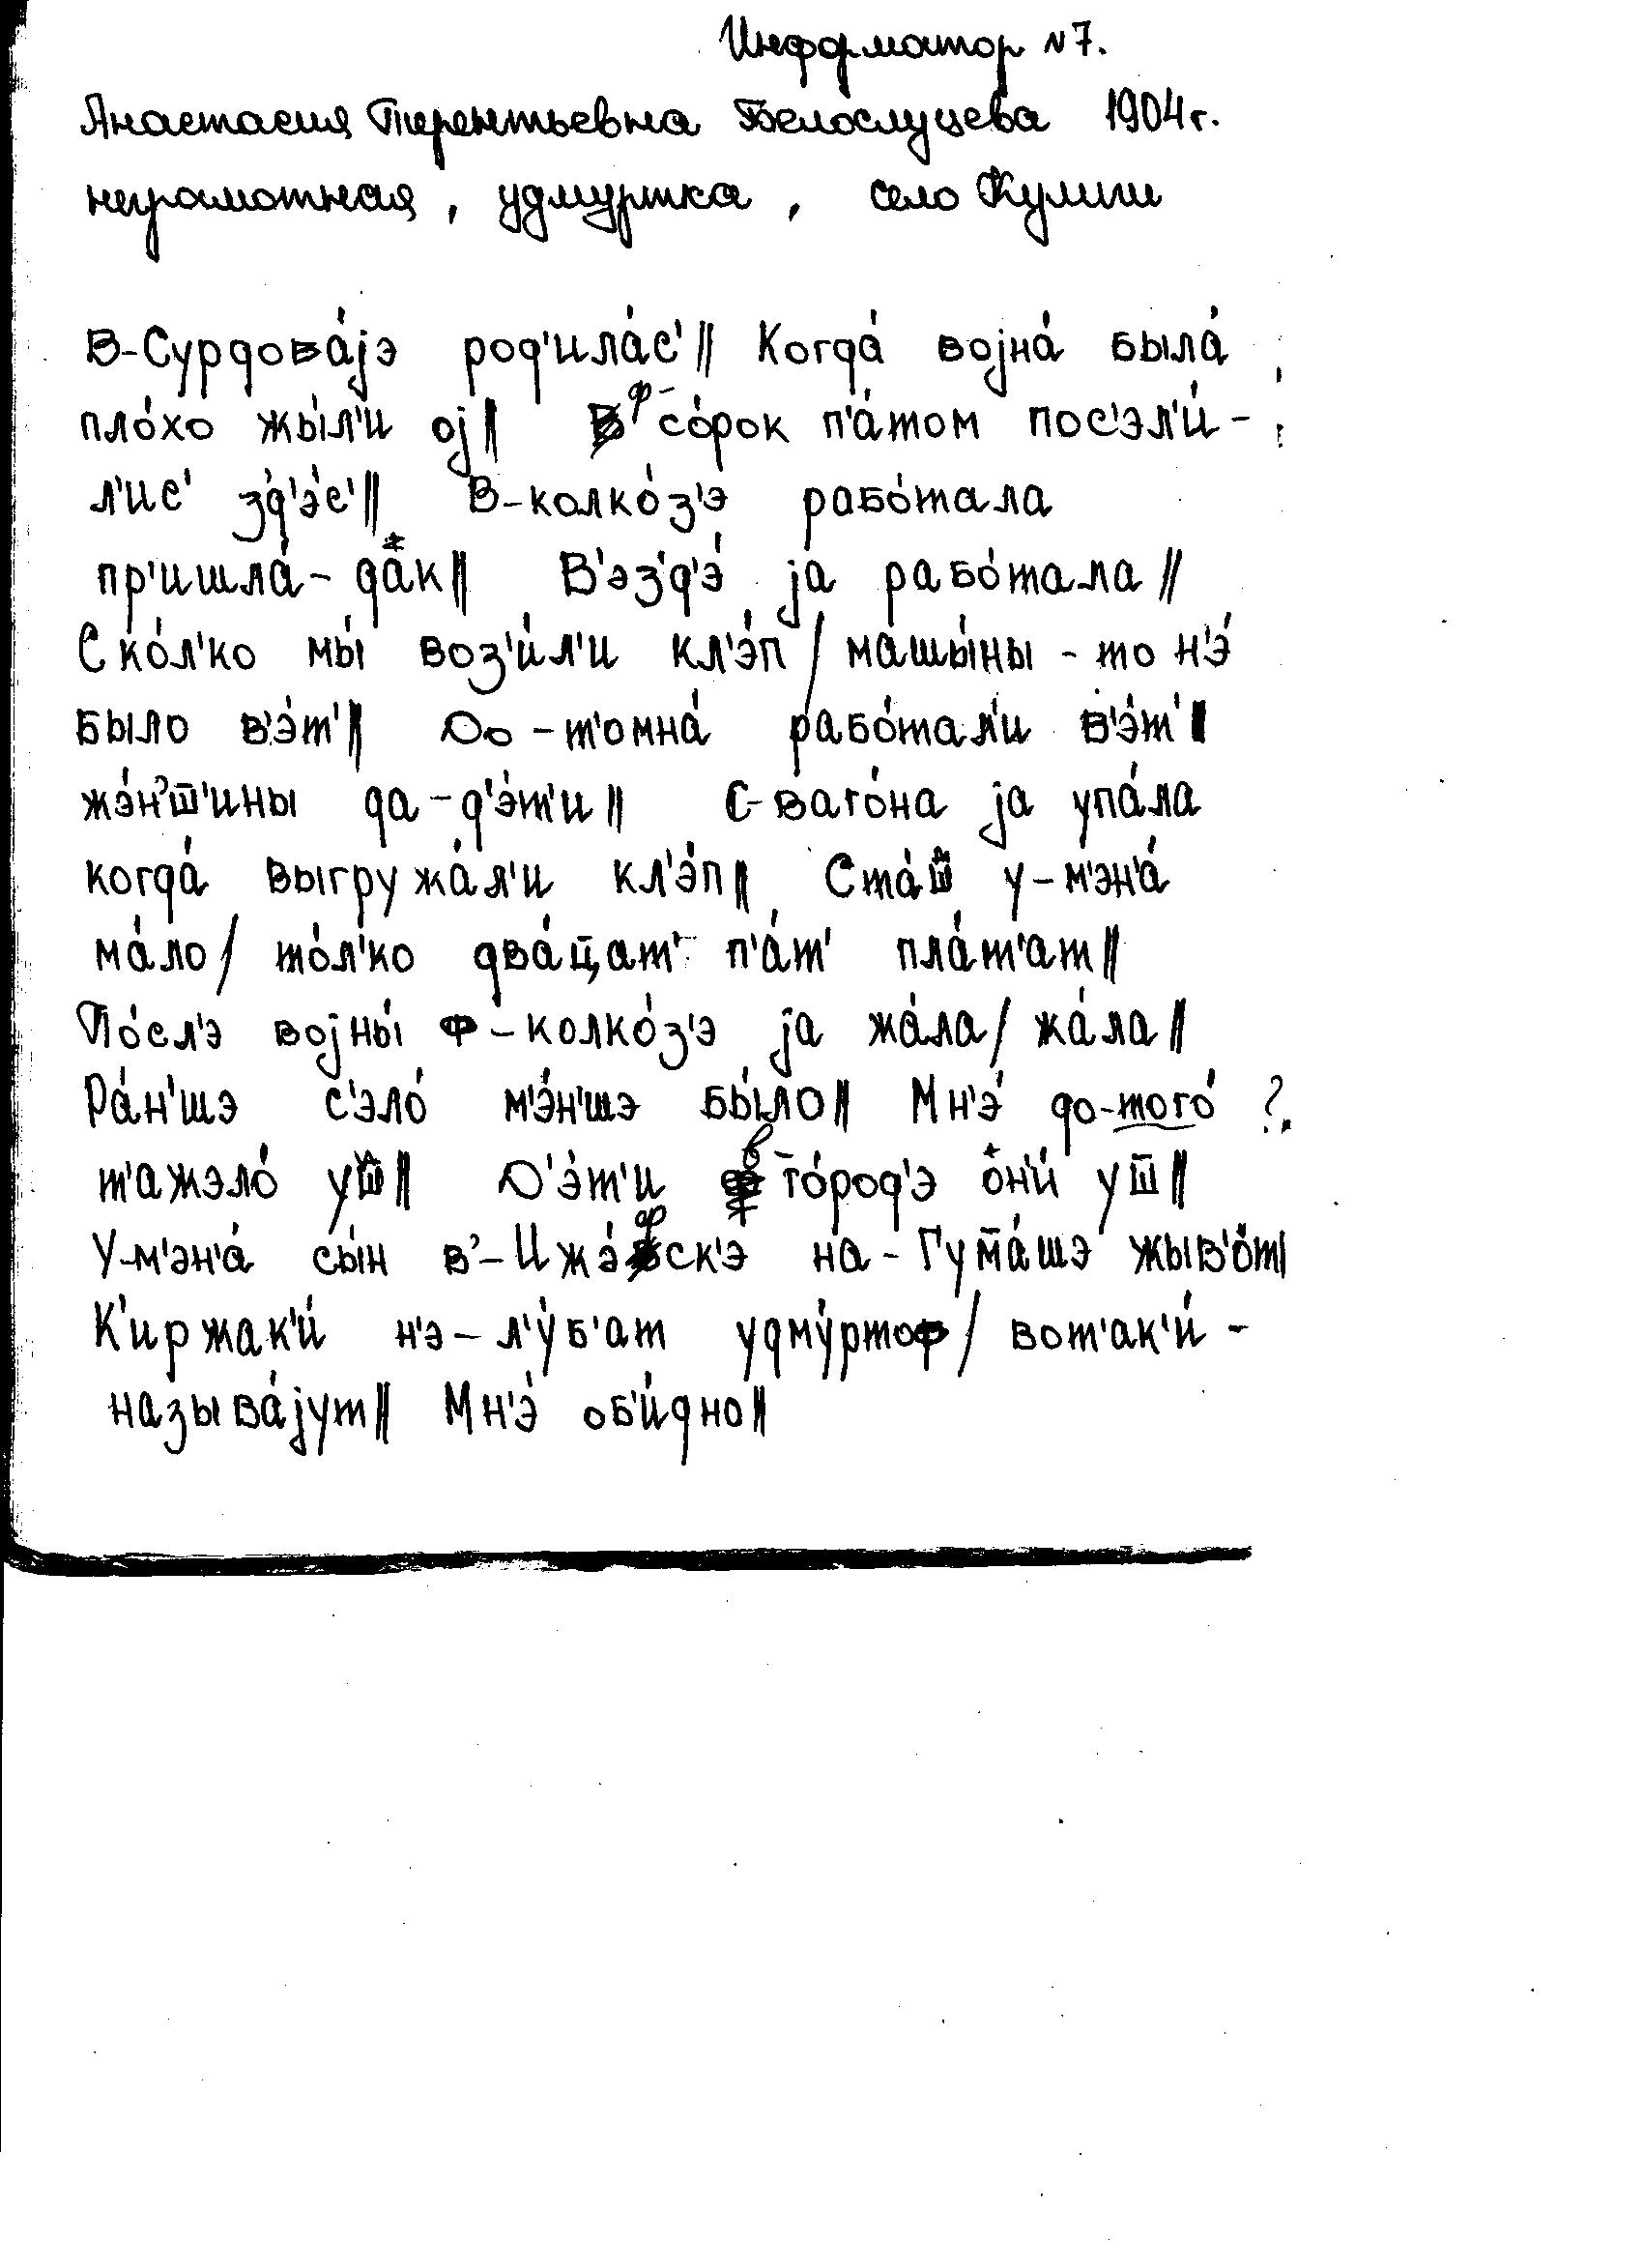 Информатор N7.
Анастасия Терентьевна Белослуцева 1904г.
неграмотная, удмуртка, село Кулиги
В-Сурдова́jэ род'ила́с'|| Когда́ воjна́ была́
пло́хо жы́л'и оj|| ф-со́рок п'а́том пос'эл'и́-
л'ис' з'д'э́с'|| В-колко́з'э рабо́тала
пр'ишла́-да̂к|| В'эз'д'э́ jа рабо́тала||
Ско́л'ко мы́ воз'и́л'и кл'э́п/ машы́ны-то н'э́
было в'э́т'|| До-т'омна́ рабо́тал'и в'э́т'|
жэ́н'ш̄'ины да-д'э́т'и|| С-ваго́на jа упа́ла
когда́ выгружа́л'и кл'э́п|| Ста́ш̄ у-м'эн'а́
ма́ло/ то́л'ко два́ц̄ат' п'а́т' пла́т'ат||
По́сл'э воjны́ ф-колко́з'э jа жа́ла/ жа́ла||
Ра́н'шэ с'эло́ м'э́н'шэ бы́ло|| Мн'э́ до-того́ ?.
т'ажэло́ уш̄|| Д'э́т'и в го́род'э он'и́ уш̄||
У-м'эн'а́ сы́н в'-Ижэ́фск'э на-Гум̄а́шэ жыв'о́т|
К'иржак'и́ н'э-л'у́б'ат удму́ртоф/ вот'ак'и́-
называ́jут|| Мн'э́ об'и́дно||